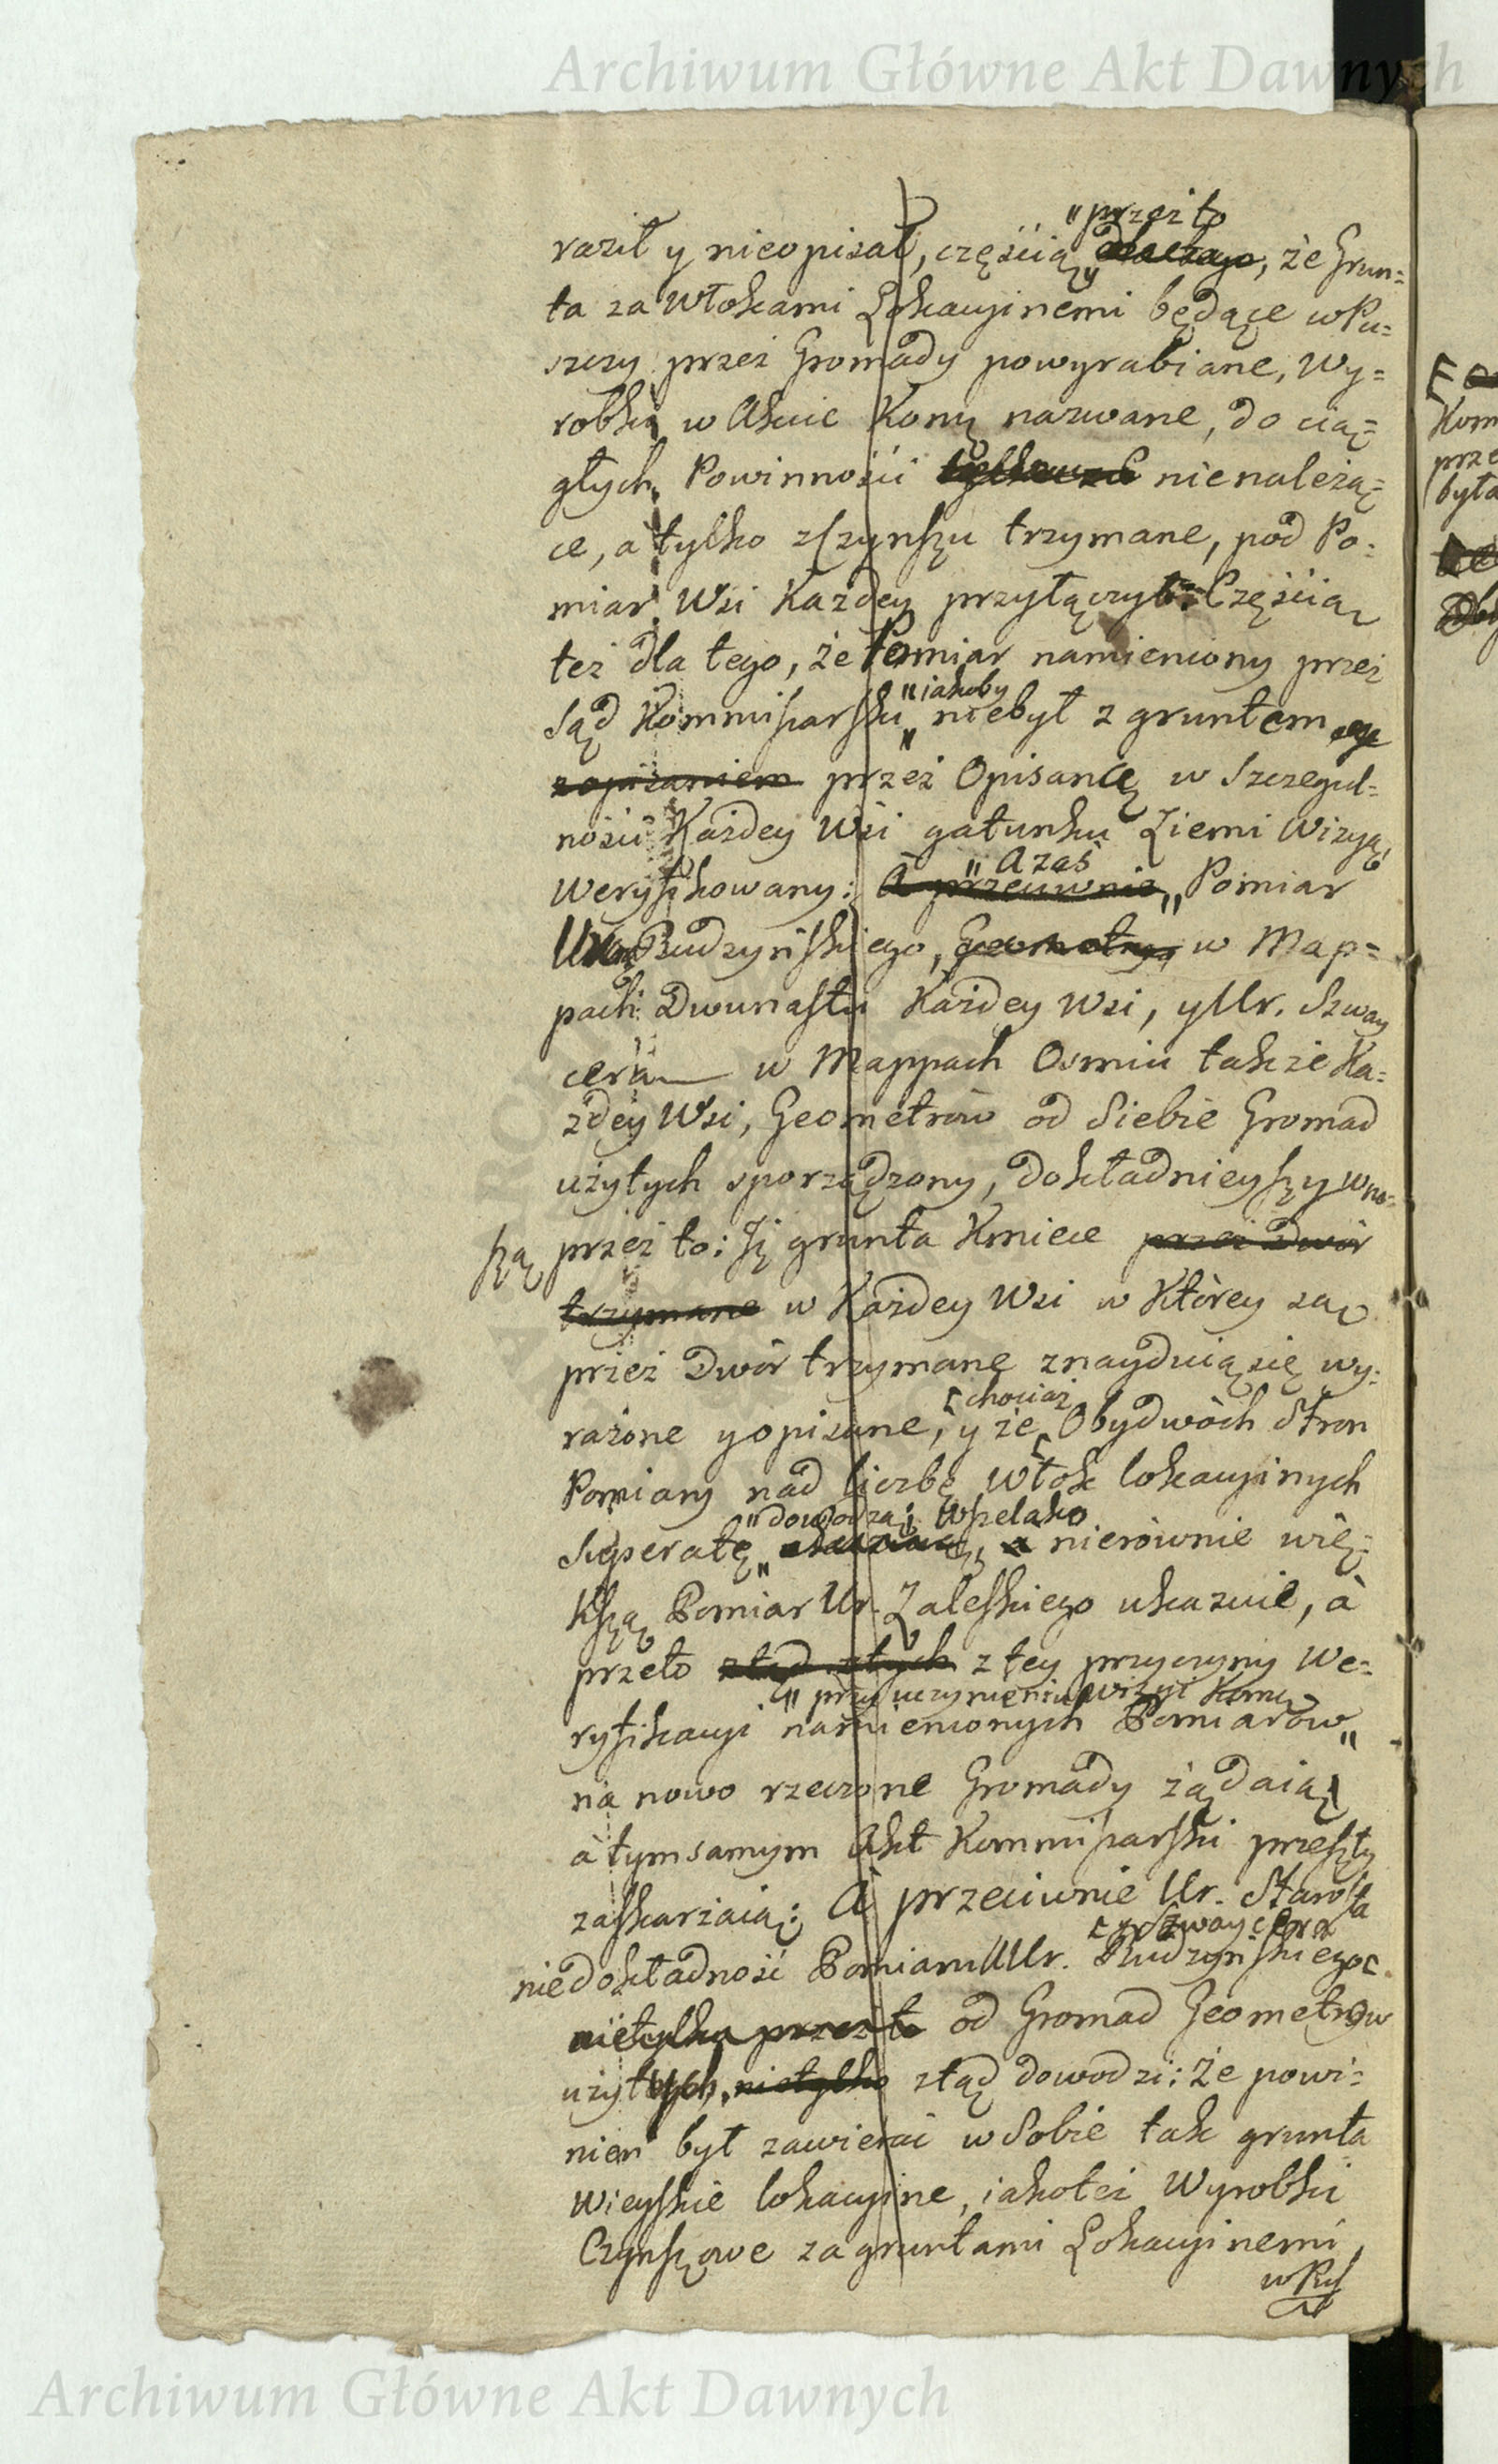 Archiwum Główne Akt Dawnych
"przez to
raził y nieopisał, częścią dlaczego, że Grun=
ta za Włokami Lokacyinemi będące w Pu=
szczy przez Gromady powyrabiane, Wy=
robką w Akcie Kom̃ nazwane, do cią=
głych Powinności nienależą=
ce, a tylko z Czynszu trzymane, pod Po=
miar Wsi Każdey przyłączył: Częścią
też dla tego, że Pomiar namieniony przez
"iakoby
Sąd Kommissarski niebył z gruntem
z opisaniem przez Opisanie w Szczegul=
ności Każdey Wsi gatunku Ziemi Wizyą
"A zaś
Weryfikowany: A przeciwnie Pomiar
Ur. Budzyńskiego, Geometrę w Map=
pach Dwunastu Każdey Wsi, y Ur. Szway
cera w Mappach Osmiu także Ka=
żdey Wsi, Geometrów od Siebie Gromad
użytych sporządzony, dokładnieyszy wno=
szą przez to: Iż grunta Kmiece przez Dwór
trzymane w Każdey Wsi w Którey są
przez Dwór trzymane znayduią się wy=
chociaż
rażone y opisane, y że Obydwóch Stron
Pomiary nad liczbę Włok lokacyinych
"dowodzą; Wszelako
Superatę a nierównie wię=
kszą Pomiar Ur. Zaleskiego ukazuie, à
przeto ztąd z tey przyczyny We=
"przy uczynieniu wizyi Kom̃
ryfikacyi namienionych Pomiarów"
na nowo rzeczone Gromady żądaią
à tymsamym Akt Kommissarski przeszły
zaskarżaią: A przeciwnie Ur. Starosta
y Szwaycera
niedokładność Pomiaru Ur. Budzyńskiego
nietylko przez to od Gromad Geometrów
użytych, nietylko ztąd dowodzi: Że powi=
nien był zawierać w Sobie tak grunta
Wieyskie lokacyine, iakoteż Wyrobki
Czynszowe za gruntami Lokacyinemi,
w Pusz
Kom
prze
była
Archiwum Główne Akt Dawnych